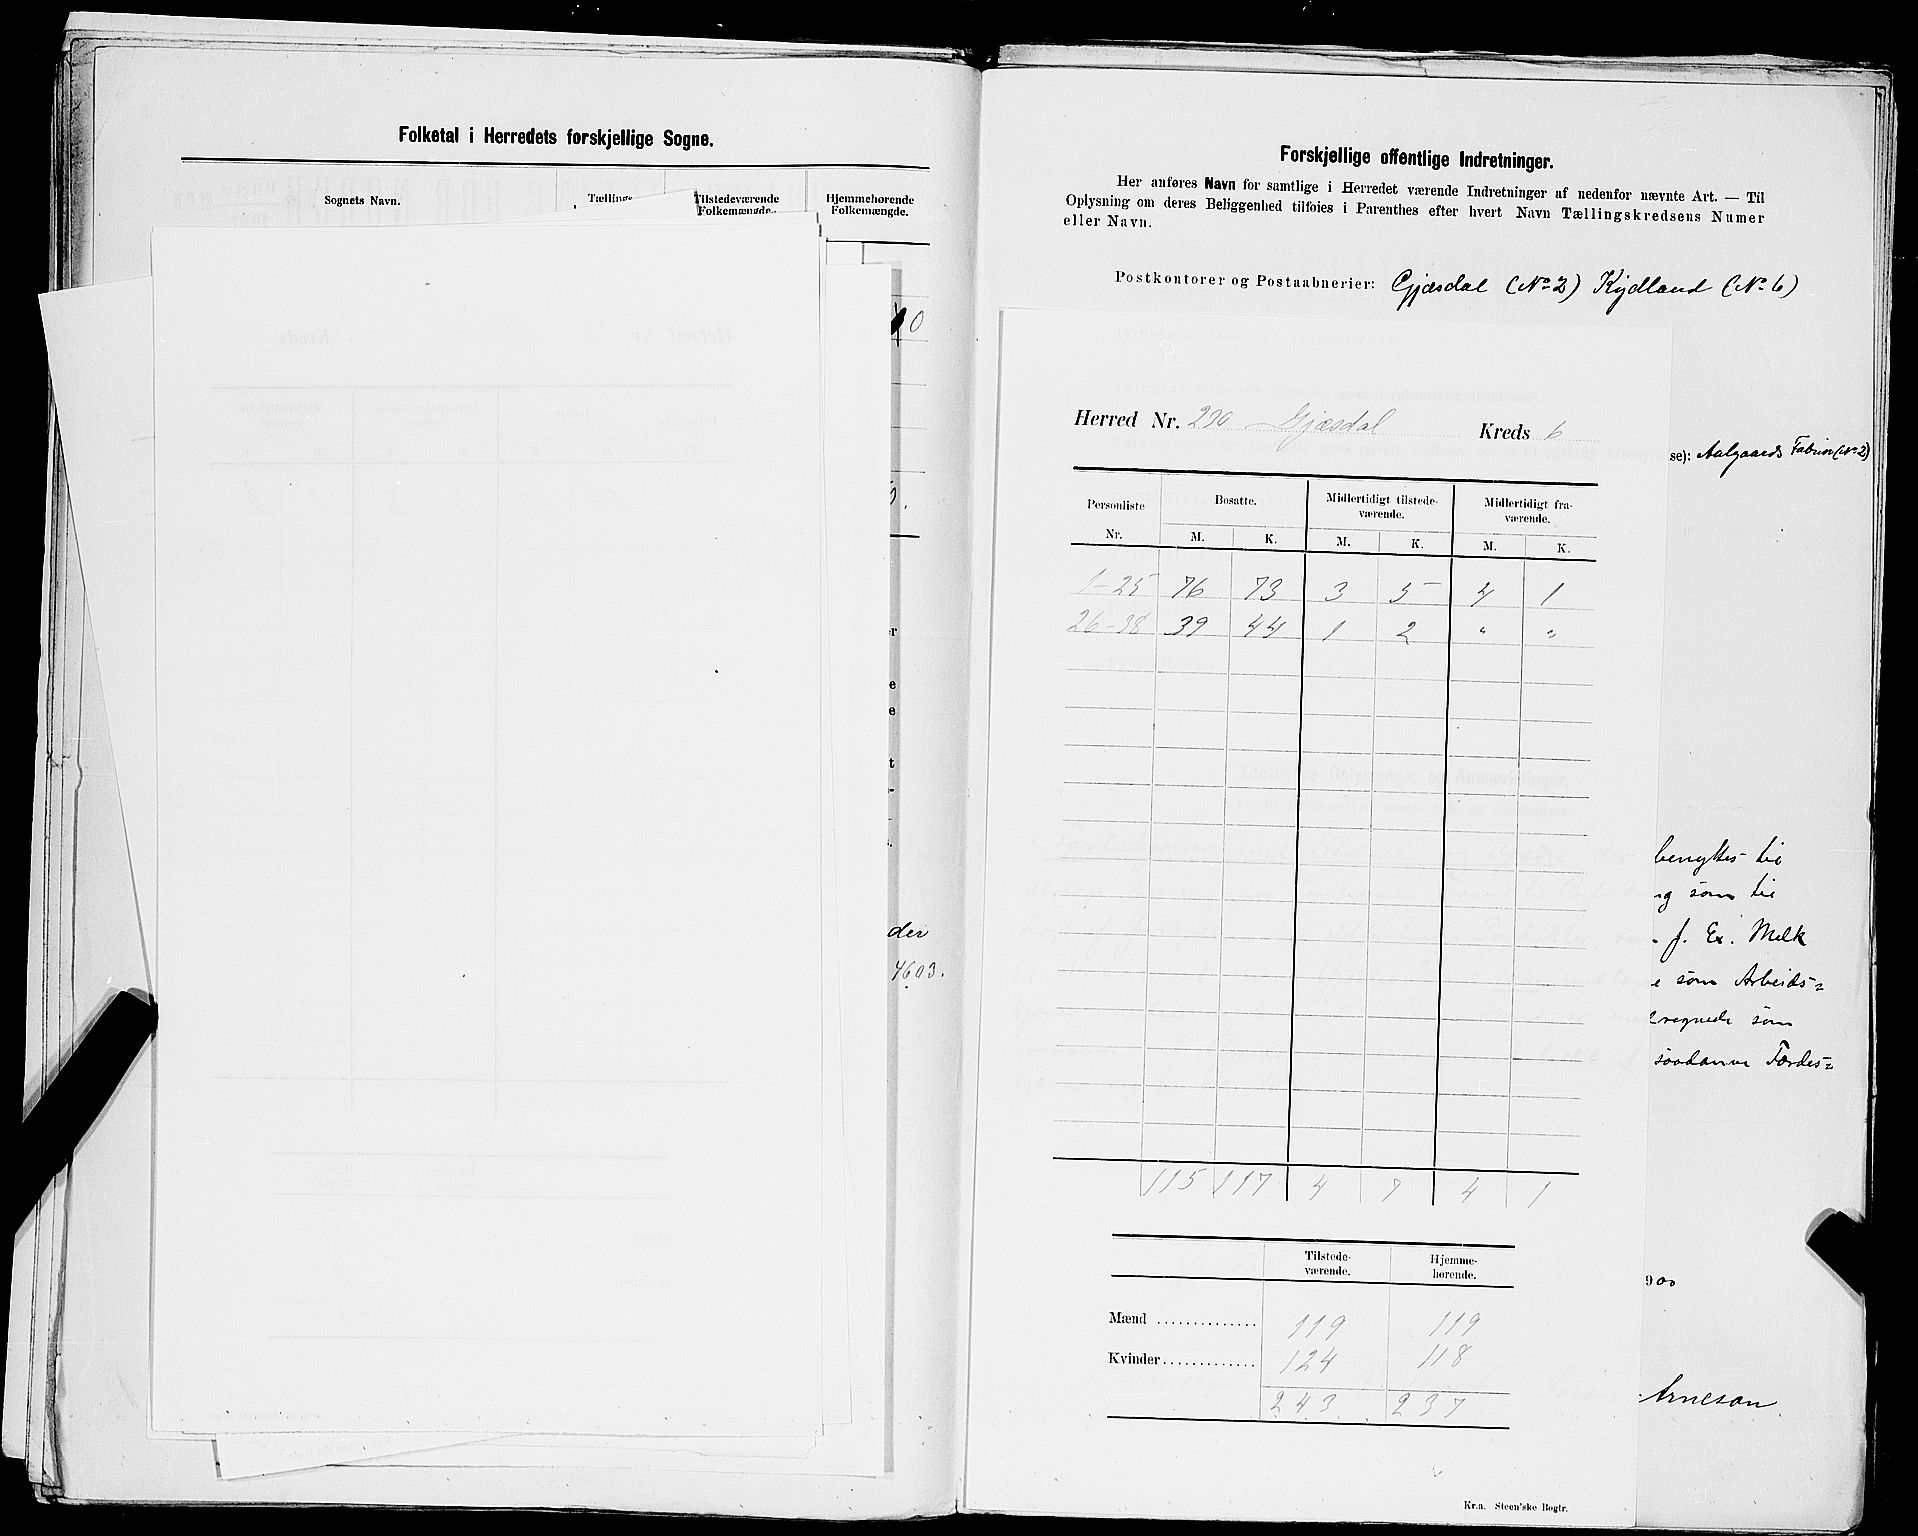 Folketal i Herredets forskjellige Sogne.
Sognets Navn.
Tilstedeværende
Folkemængde.
Hjemmehørende
Folkemængde.
der
4603.
Forskjellige offentlige Indretninger.
Her anføres Navn for samtlige i Herredet værende Indretninger af nedenfor nævnte Art. — Til
Oplysning om deres Beliggenhed tilføies i Parenthes efter hvert Navn Tællingskredsens Numer
eller Navn.
Postkontorer og Postaabnerier: Gjæsdal (No 2) Kydland (No 6)
Herred Nr. 230 Gjæsdal Kreds 6
se): Aalgaards Fabrik (No 2)
Personliste Nr. Bosatte. M. K. Midlertidigt tilstedeværende. M. K. Midlertidigt fraværende. M. K.
1-25 76 73 3 5 4 1
26-38 39 44 1 2 " "
115 117 4 7 4 1
benyttes til
ng som til
f. Ex. Melk
e som Arbeids=
regnede som
saadanne Færdes=
Tilstedeværende. Hjemmehørende.
900
Mænd 119 119
Kvinder 124 118
243 237
Arneson
Kr.a. Steen'ske Bogtr.